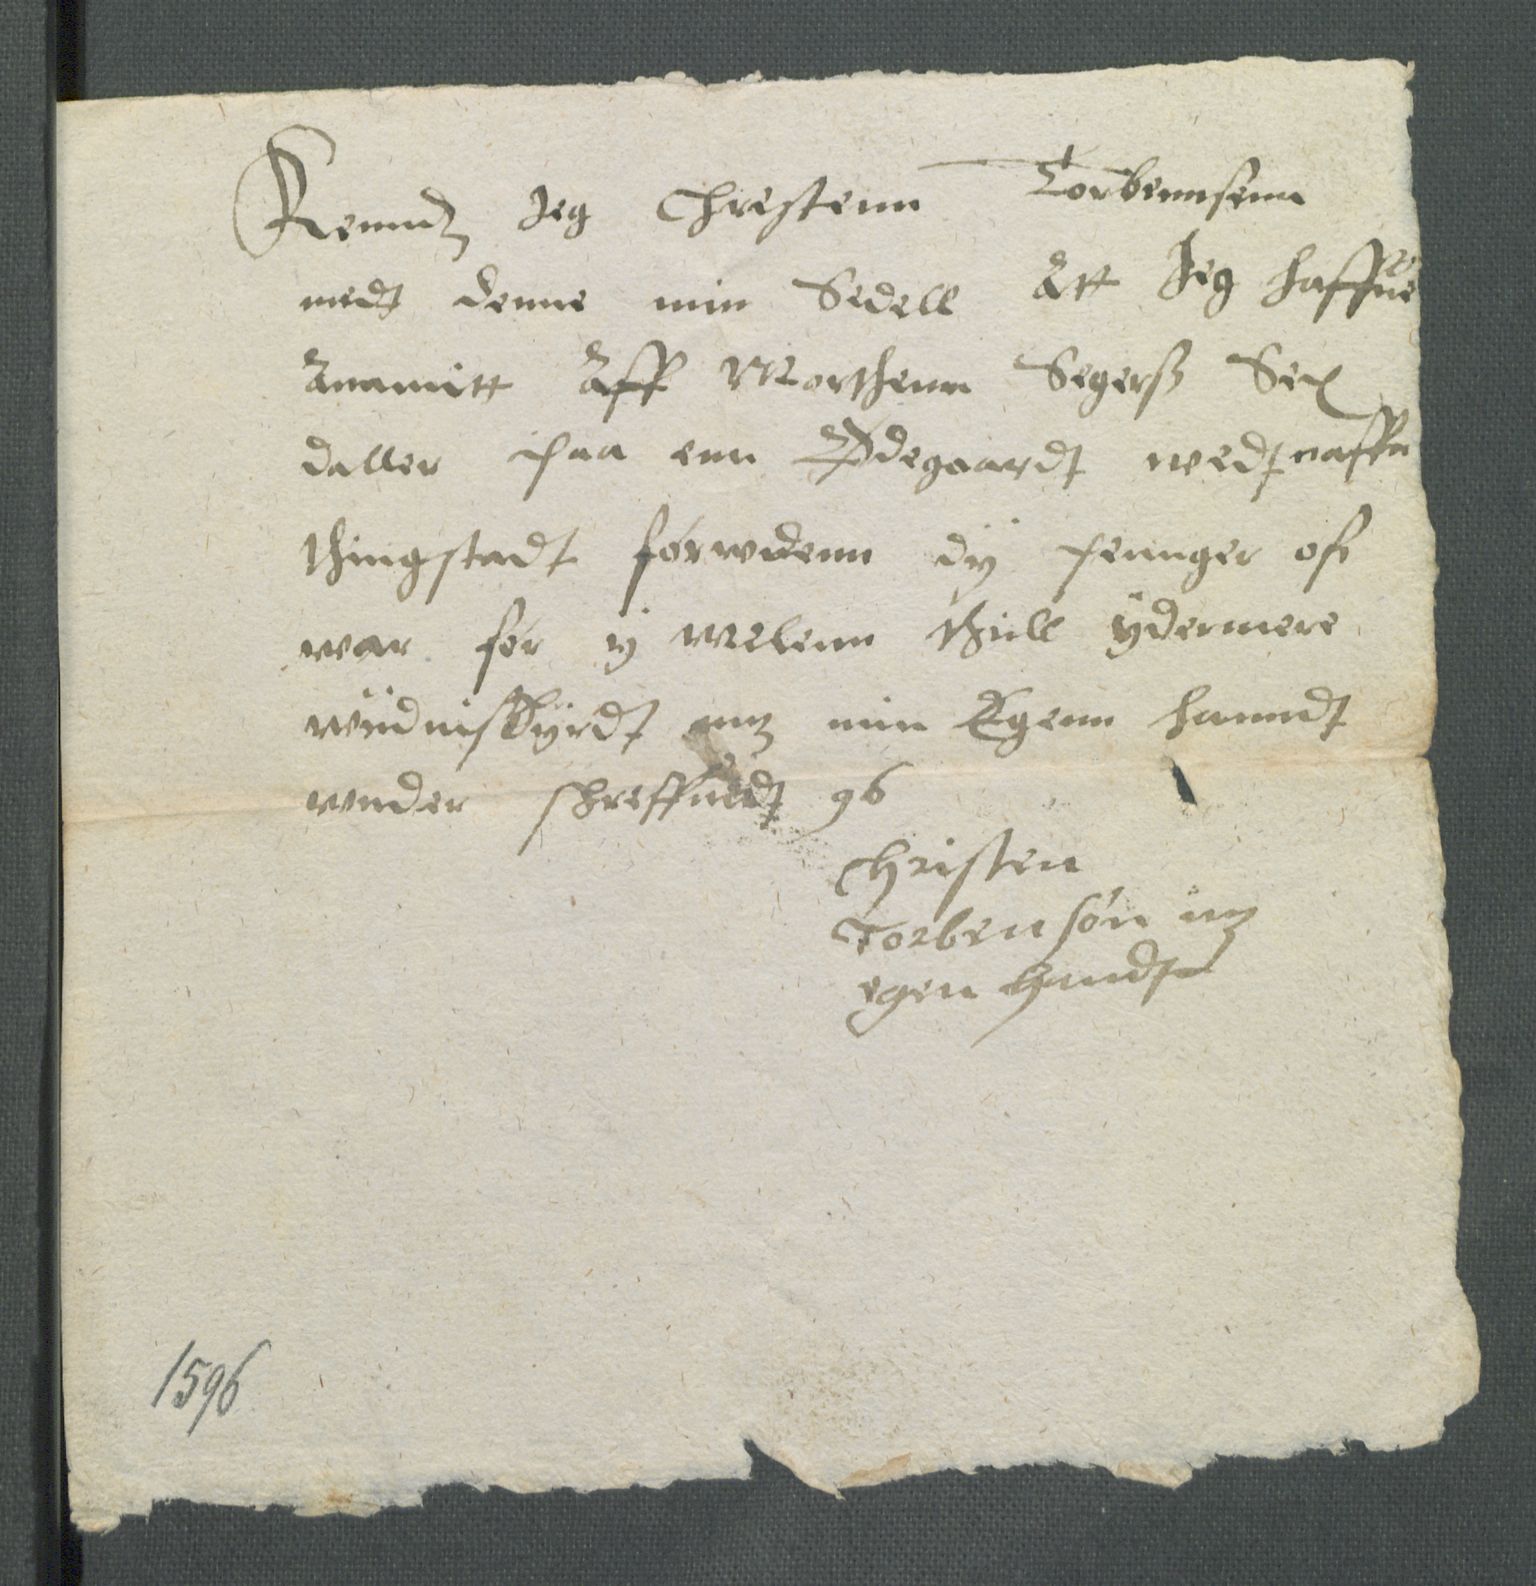 Kenndz Jeg Chrestenn Torbennsenn
medt denne min Sedell Att Jeg haffue
Anamitt Aff Morthenn Segerss Sex
daller paa enn Ødegaardt wedt naffn
thingstadt forwdenn dÿ penninger ofr
war for ÿ Melenn thill ÿdermere
widnisbÿrdt mz min Egenn hanndt
wnder schreffuedt 96
Christen
Torbensøn mz
egen handt
1596